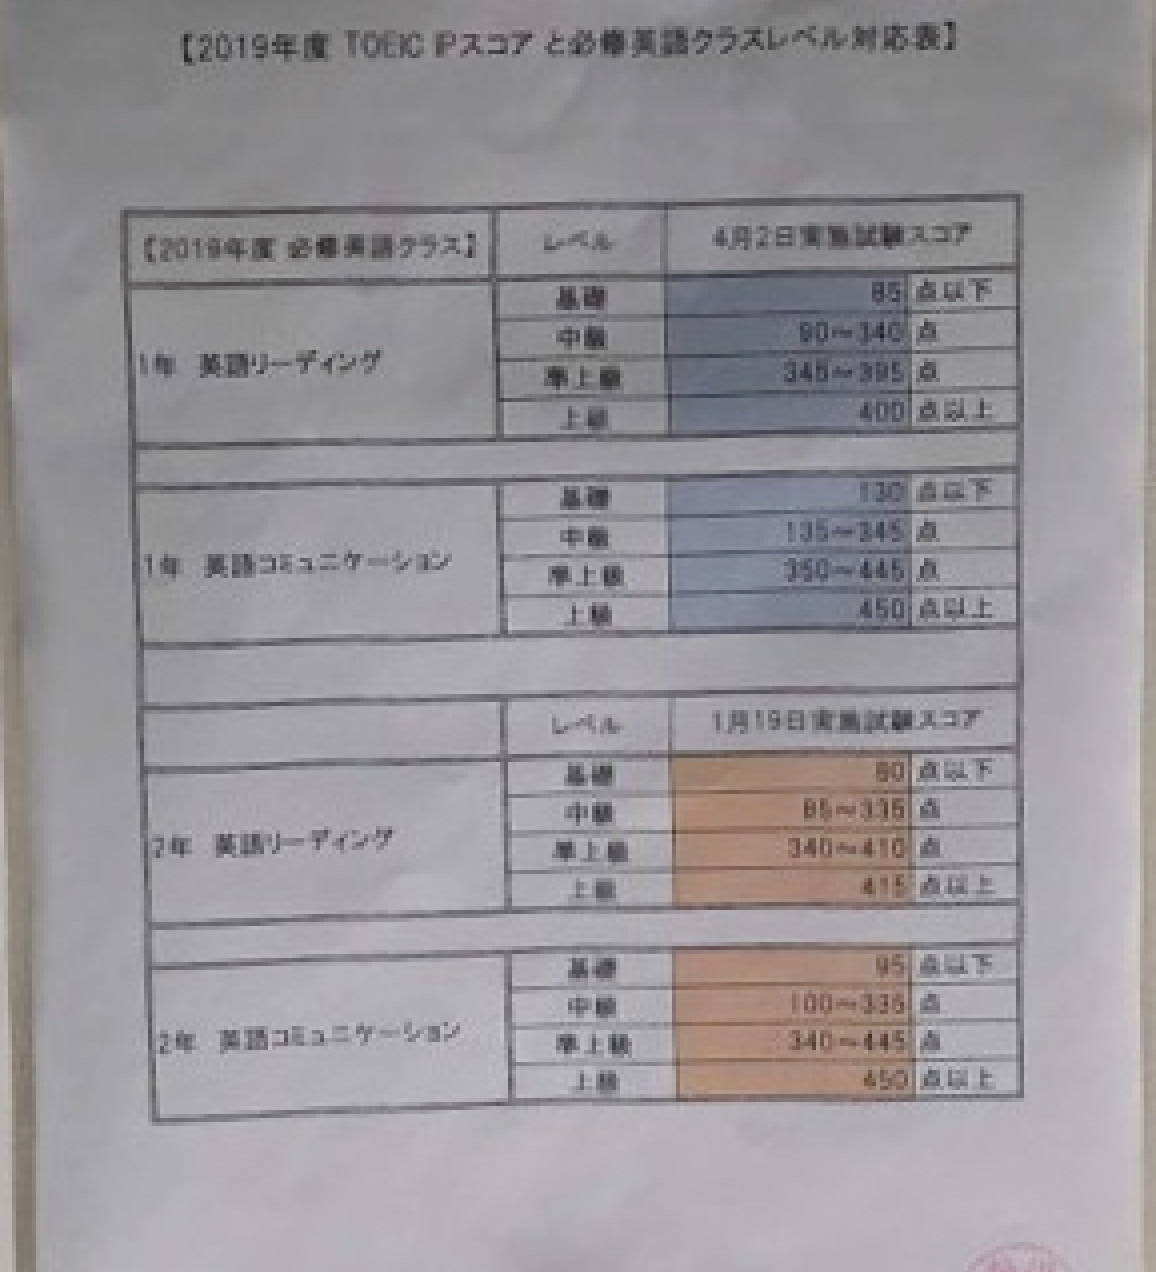 【2019年度 TOEIC IPスコア と必修英語クラスレベル対応表】
【2019年度 必修英語クラス】 レベル 4月2日実施試験スコア
1年 英語リーディング
基礎 85 点以下
中級 90～340 点
準上級 345～395 点
上級 400 点以上
1年 英語コミュニケーション
基礎 130 点以下
中級 135～345 点
準上級 350～445 点
上級 450 点以上
レベル 1月19日実施試験スコア
2年 英語リーディング
基礎 80 点以下
中級 85～335 点
準上級 340～410 点
上級 415 点以上
2年 英語コミュニケーション
基礎 95 点以下
中級 100～335 点
準上級 340～445 点
上級 450 点以上